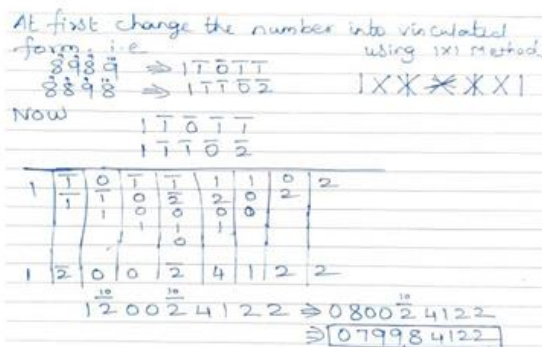 At first change the number into vinculated
form. i.e using 1x1 Method.
8989 ⇒ 1 1̅ 0̅ 1̅ 1̅
8898 ⇒ 1 1̅ 1̅ 0̅ 2̅
Now 1 1̅ 0̅ 1̅ 1̅
1 1̅ 1̅ 0̅ 2̅
1 1̅ 0̅ 1̅ 1̅ 1 1 0 2
1̅ 1̅ 0 2̅ 2 0 2
1 0 0 0 0
1 1 1
0
1 2̅ 0 0 2̅ 4 1 2 2
1 2̅ 0 0 2̅ 4 1 2 2 ⇒ 0 8 0 0 2̅ 4 1 2 2
⇒ 0 7 9 9 8 4 1 2 2